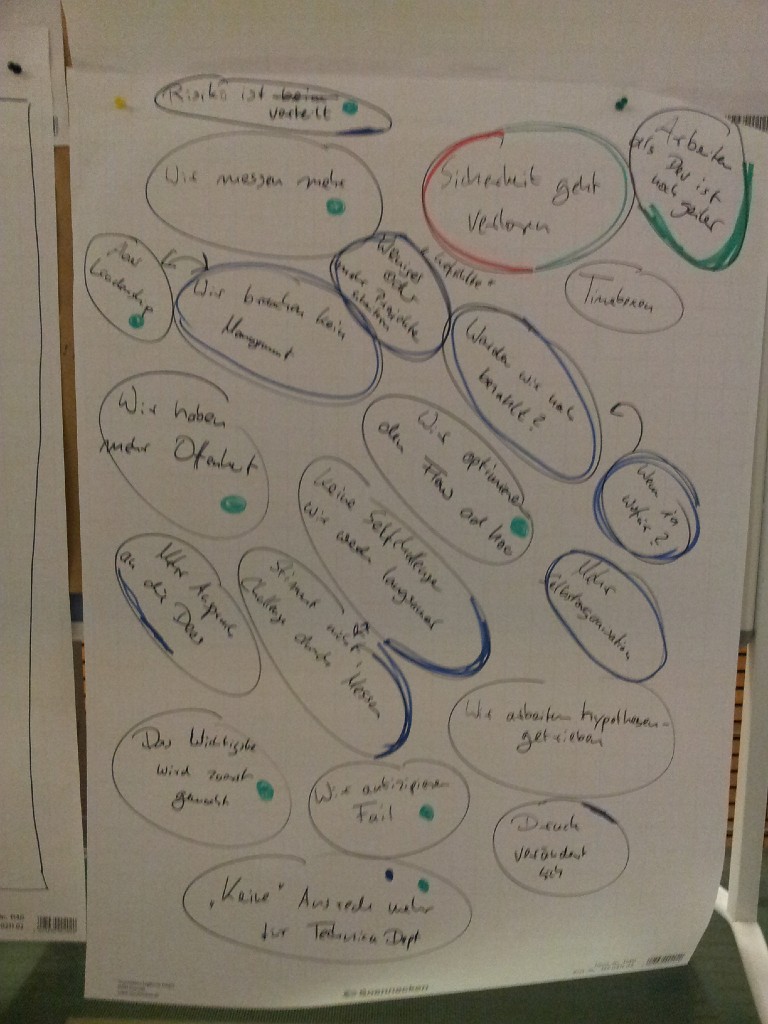 Risiko ist beim
verteilt
Wir messen mehr
Sicherheit geht
verloren
Arbeiten
als Dev ist
noch geiler
Aber
Leadership
Wir brauchen kein
Management
Weniger
oder
mehr Projekte
"gefühlte"
Timeboxen
Werden wir noch
bezahlt?
Wir haben
mehr Offenheit
Wir optimieren
den Flow ad hoc
Wenn ja
wofür?
Keine Selfchallenge
wir werden langsamer
Mehr
Selbstorganisation
Mehr Anspruch
an die Devs
Stimmt nicht!
Challenge durch Messen
Wir arbeiten Hypothesen-
getrieben
Das Wichtigste
wird zuerst
gemacht
Wir antizipieren
Fail
Druck
verändert
sich
"Keine" Ausrede mehr
für Technical Dept